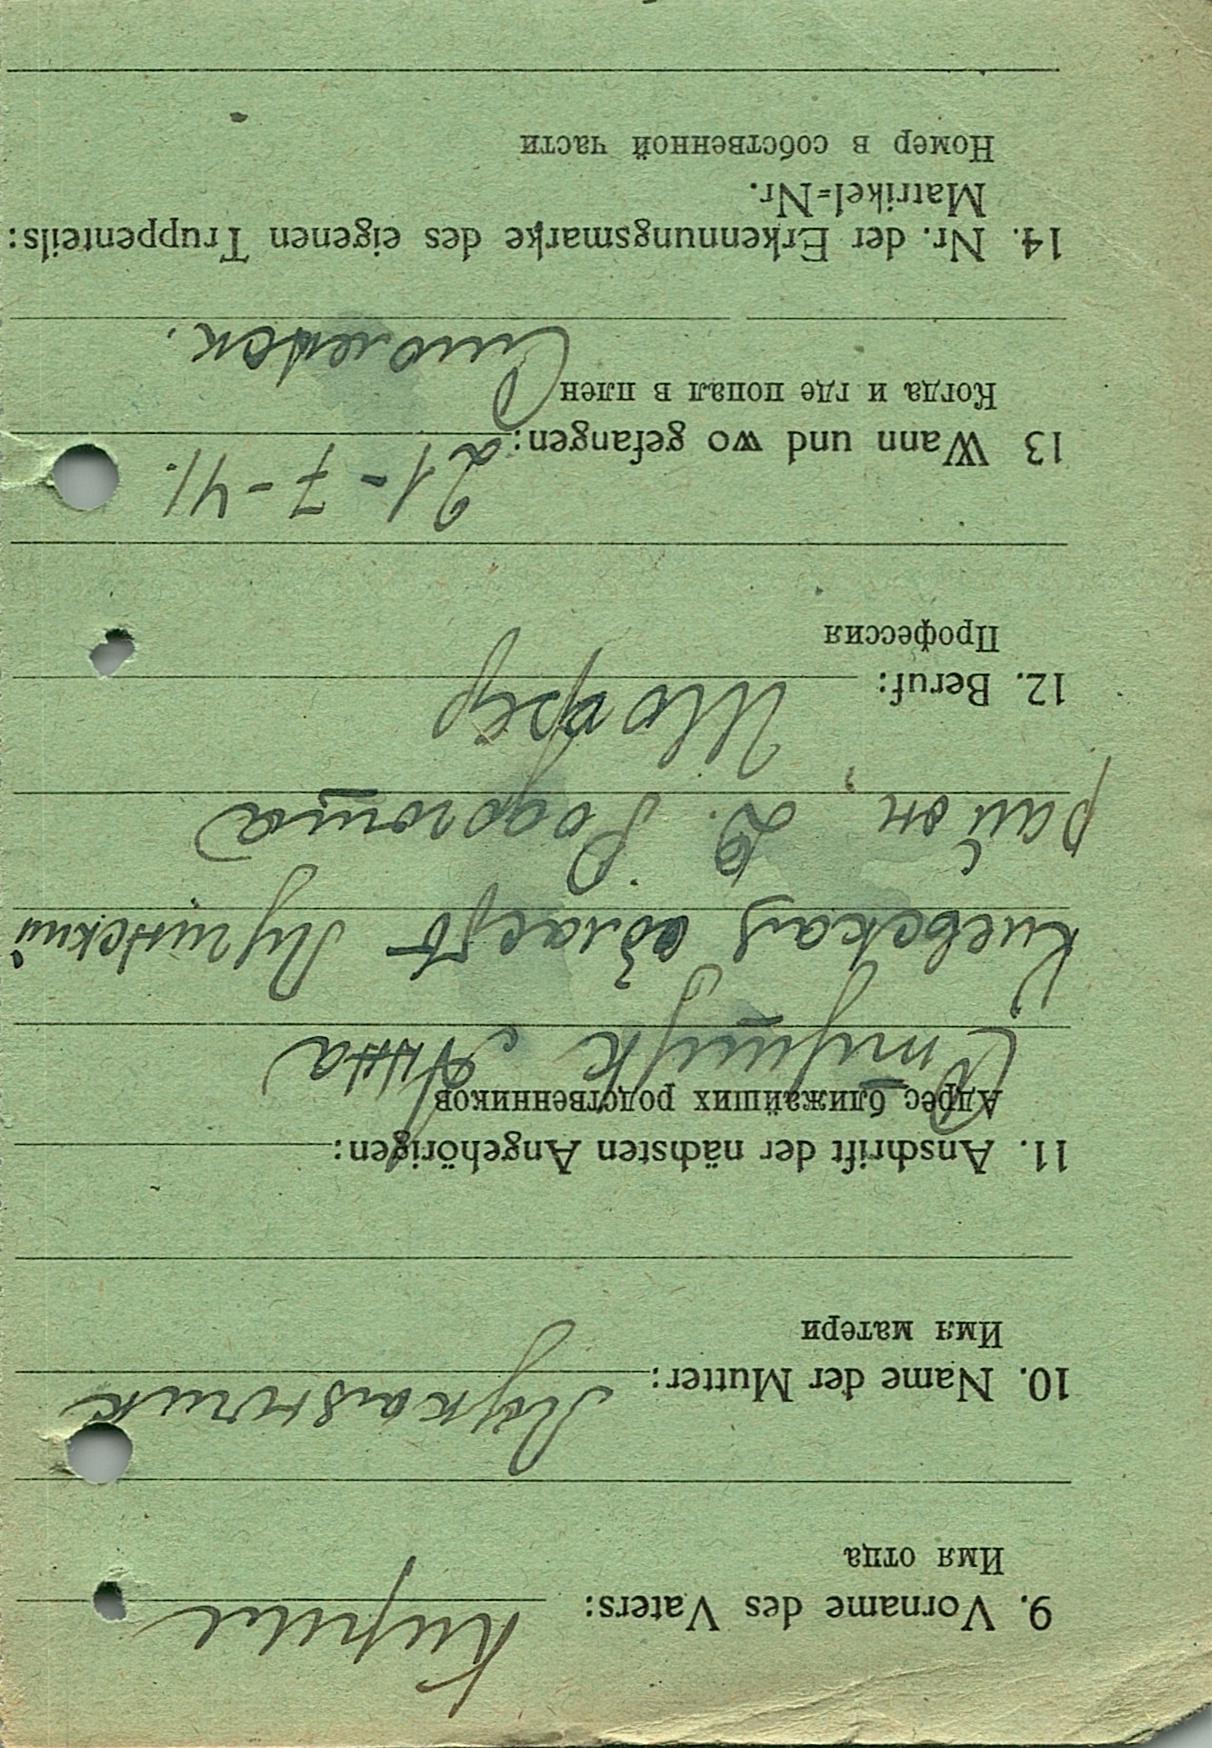 9. Vorname des Vaters: Кирилл
Имя отца
10. Name der Mutter:
Имя матери
11. Anschrift der nächsten Angehörigen:
Адрес ближайших родственников
Анна
Киевская область
район, Д.
12. Beruf: Шофер
Профессия
13 Wann und wo gefangen: 21-7-41.
Когда и где попал в плен Смоленск.
14. Nr. der Erkennungsmarke des eigenen Truppenteils:
Matrikel=Nr.
Номер в собственной части